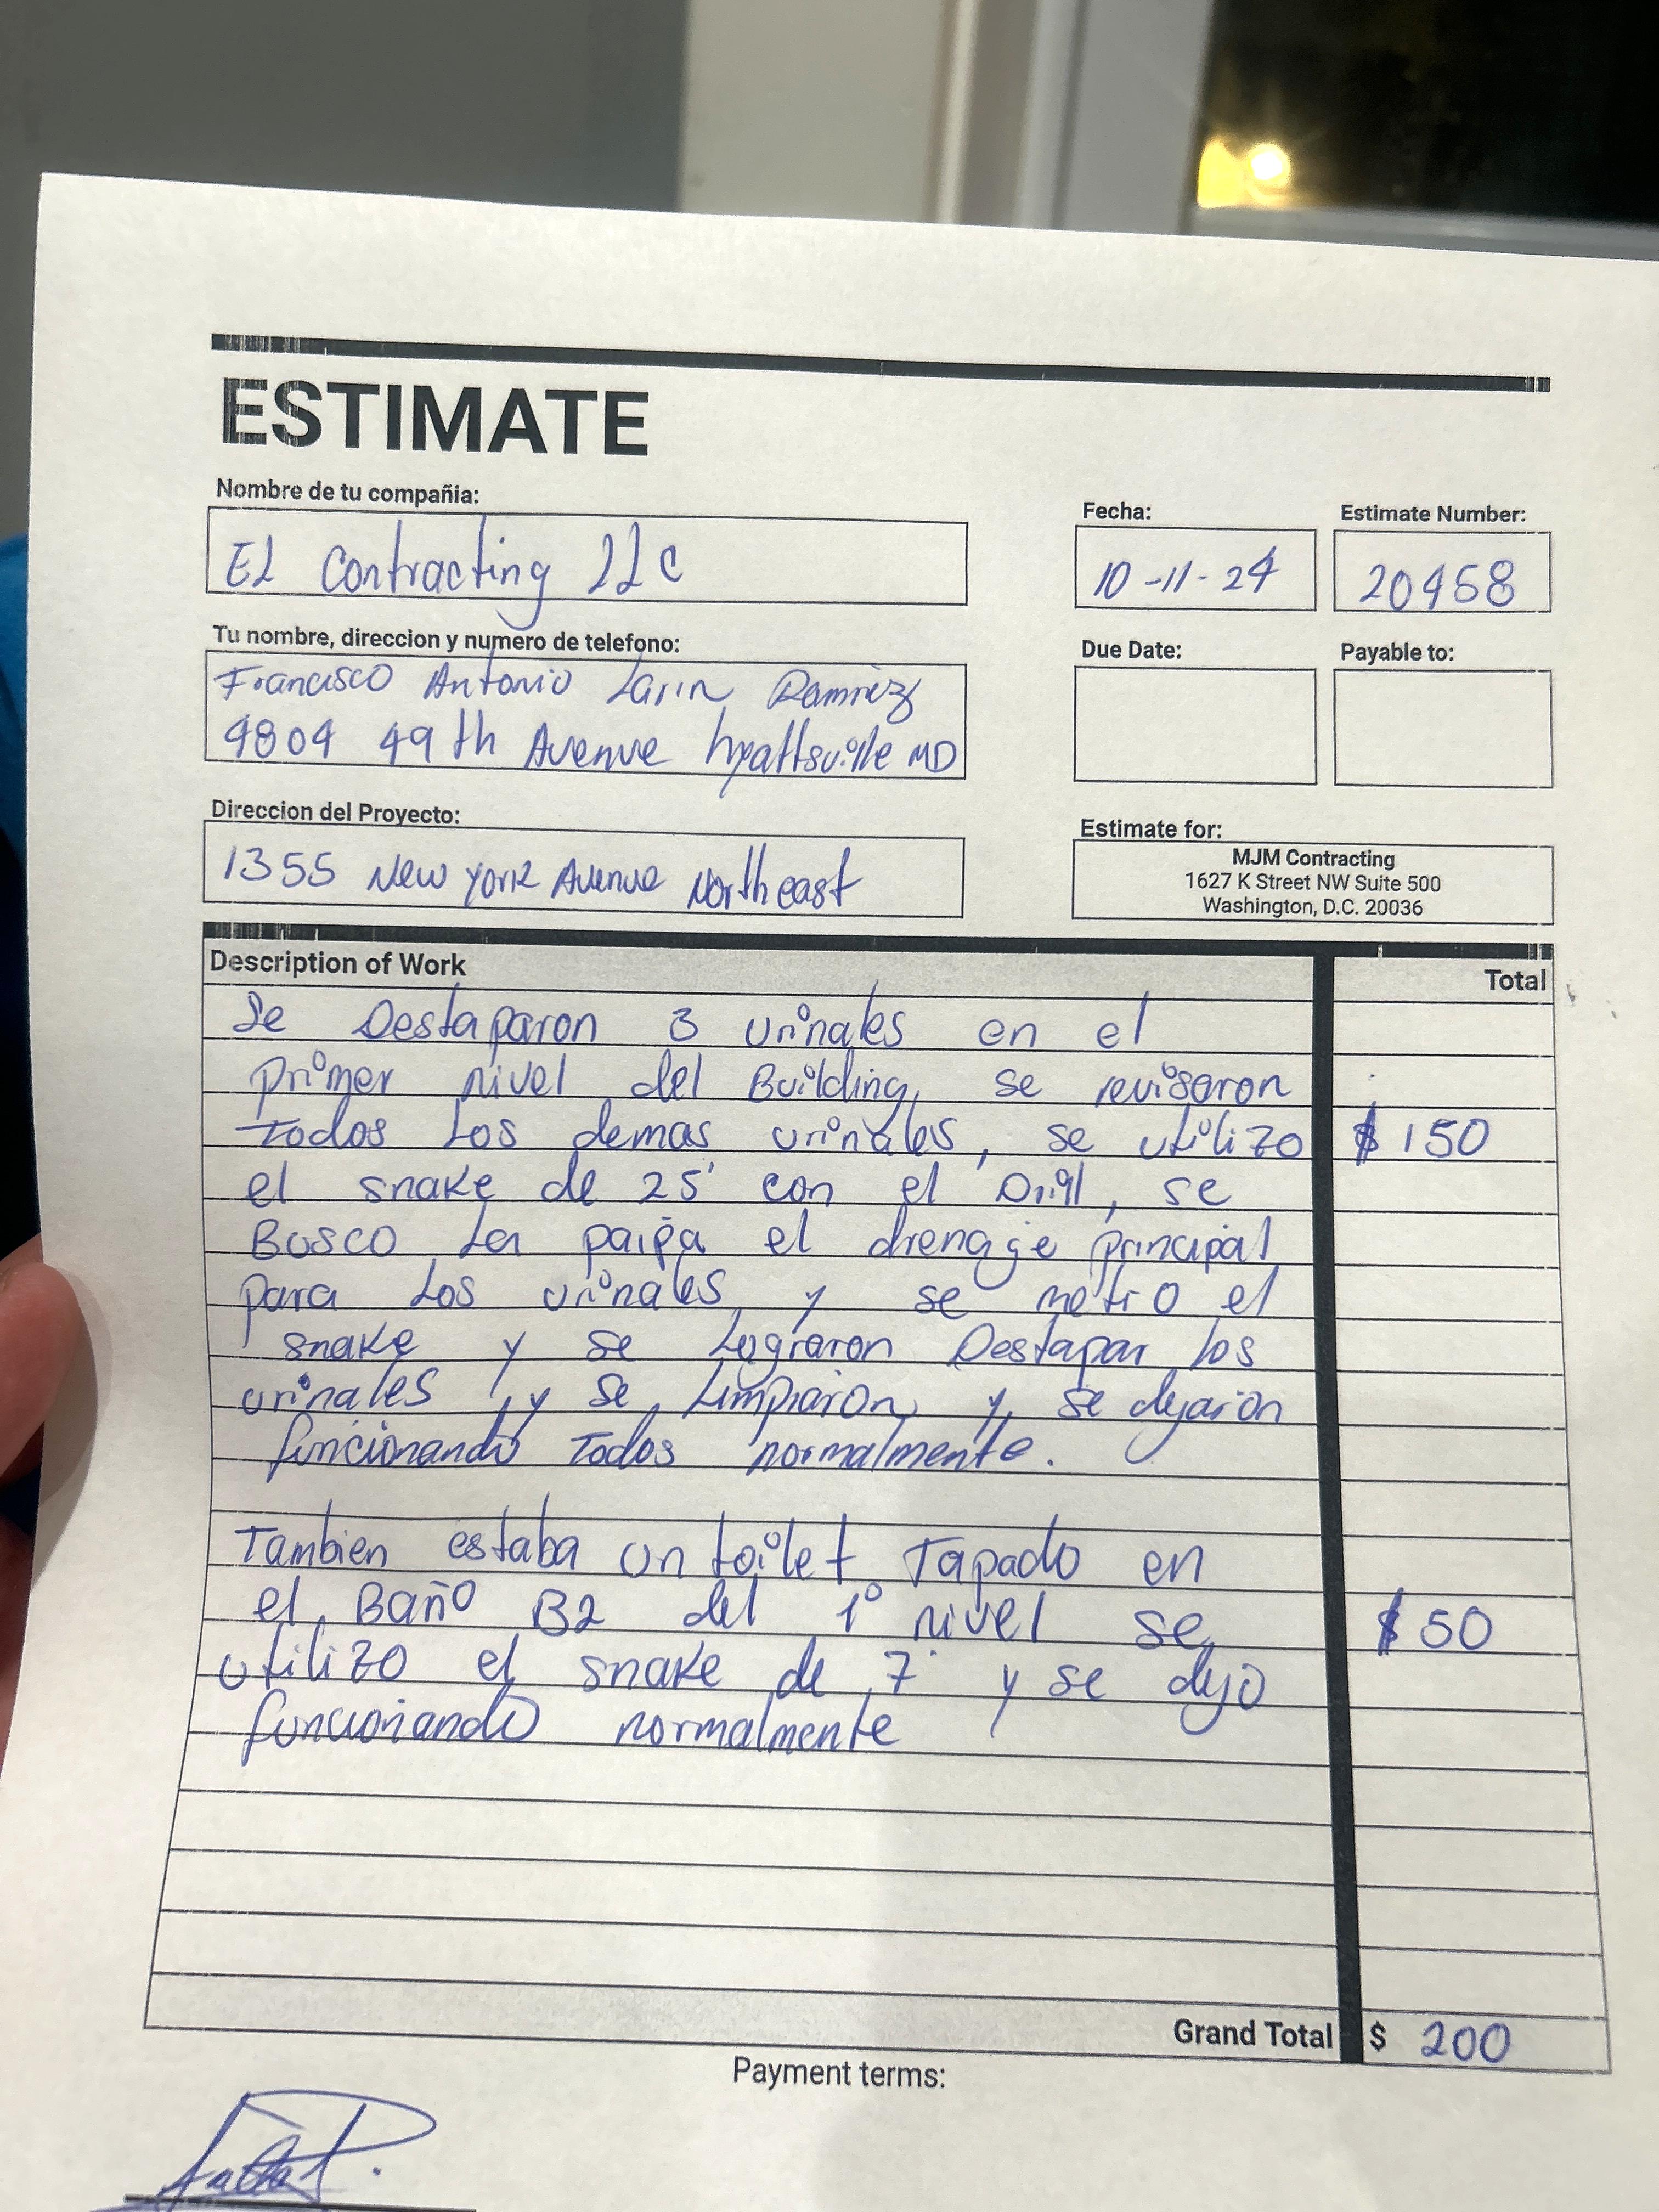 ESTIMATE
Nombre de tu compañia:
EL Contracting LLC
Fecha:
10-11-24
Estimate Number:
20468
Tu nombre, direccion y numero de telefono:
Francisco Antonio Larin Ramirez
4804 49th Avenue hyattsville MD
Due Date:
Payable to:
Direccion del Proyecto:
1355 New York Avenue Northeast
Estimate for:
MJM Contracting
1627 K Street NW Suite 500
Washington, D.C. 20036
Description of Work
Total
Se Destaparon 3 urinales en el
primer nivel del Building, se revisaron
Todos Los demas urinales, se utilizo $ 150
el snake de 25' con el Drill, se
Busco La paipa el drenage principal
para Los urinales, y se metio el
snake y se Lograron Destapar los
urinales, y se Limpiaron, y se dejaron
funcionando Todos normalmente.
Tambien estaba un toilet Tapado en
el Baño B2 del 1° nivel se $ 50
utilizo el snake de 7' y se dejo
funcionando normalmente
Grand Total $ 200
Payment terms: